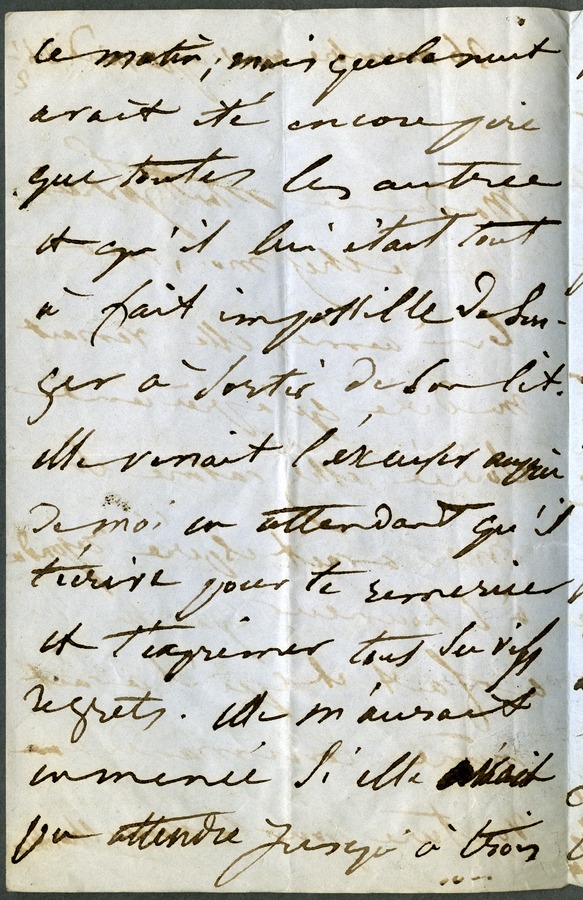 ce matin, mais que la nuit
avait été encore pire
que toutes les autres
et qu'il lui était tout
à fait impossible de son-
ger à sortir de son lit.
elle venait l'excuser auprès
de moi en attendant qu'il
t'écrive pour te remercier
et t'exprimer tous ses vifs
regrets. Elle m'aurait
emmenée si elle avait
pu attendre jusqu'à trois